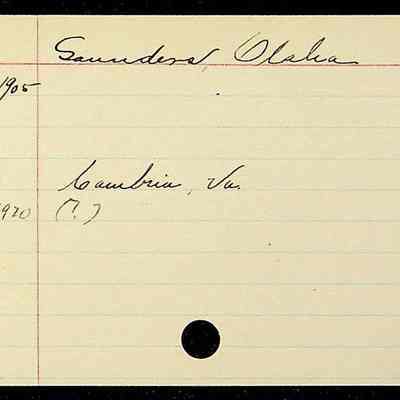 Saunders, Olaha
1905
Cambria, Va.
1920 (?)